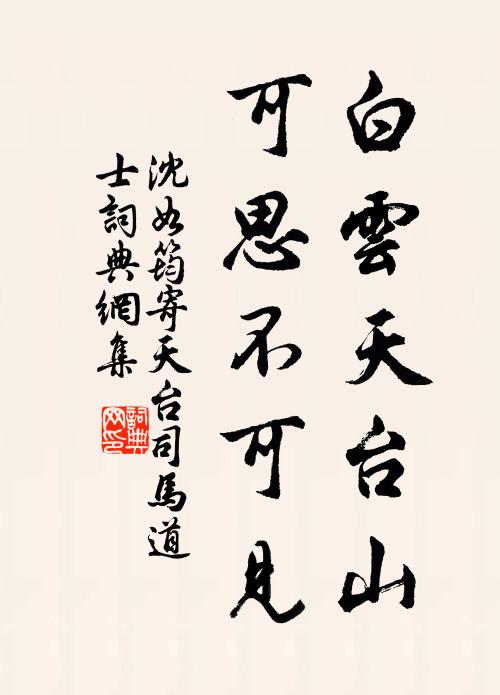 白雲天台山
可思不可見
沈如筠寄天台司馬道
士詞典網集
詞典
网印